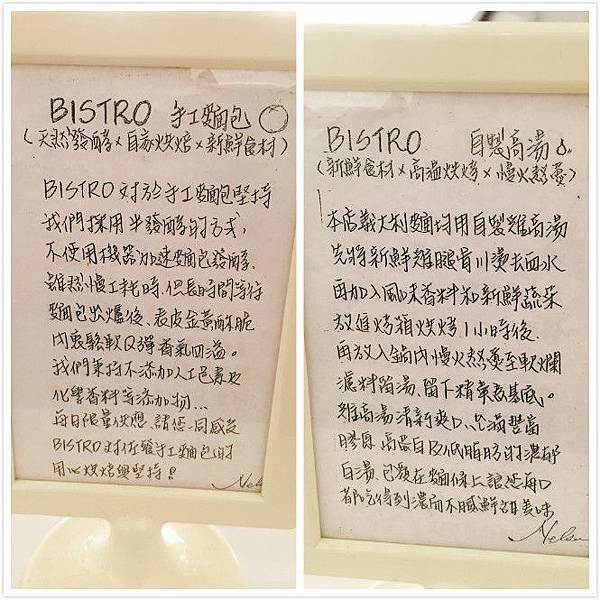 BISTRO 手工麵包
(天然發酵×自家烘焙×新鮮食材)
BISTRO對於手工麵包堅持
我們採用半發酵的方式,
不使用機器加速麵包發酵.
雖然慢工耗時,但長時間等待
麵包出爐後、表皮金黃酥脆
內裏鬆軟Q彈香氣四溢。
我們秉持不添加人工色素及
化學香料等添加物...
每日限量供應、請您一同感受
BISTRO對在雞手工麵包的
用心烘焙與堅持!
Nels
BISTRO 自製高湯
(新鮮食材×高溫烘烤×慢火熬燙)
本店義大利麵均用自製雞高湯
先將新鮮雞腿骨川燙去血水
再加入風味香料和新鮮蔬菜
放進烤箱烘烤1小時後.
再放入鍋內慢火熬燙至軟爛
濾料陷湯、留下精華底基底。
雞高湯清新爽口、充滿豐富
膠原、高蛋白及低脂肪的濃郁
白湯.已巴在麵條上讓您每口
都吃得到濃而不膩鮮甜美味
Nelson